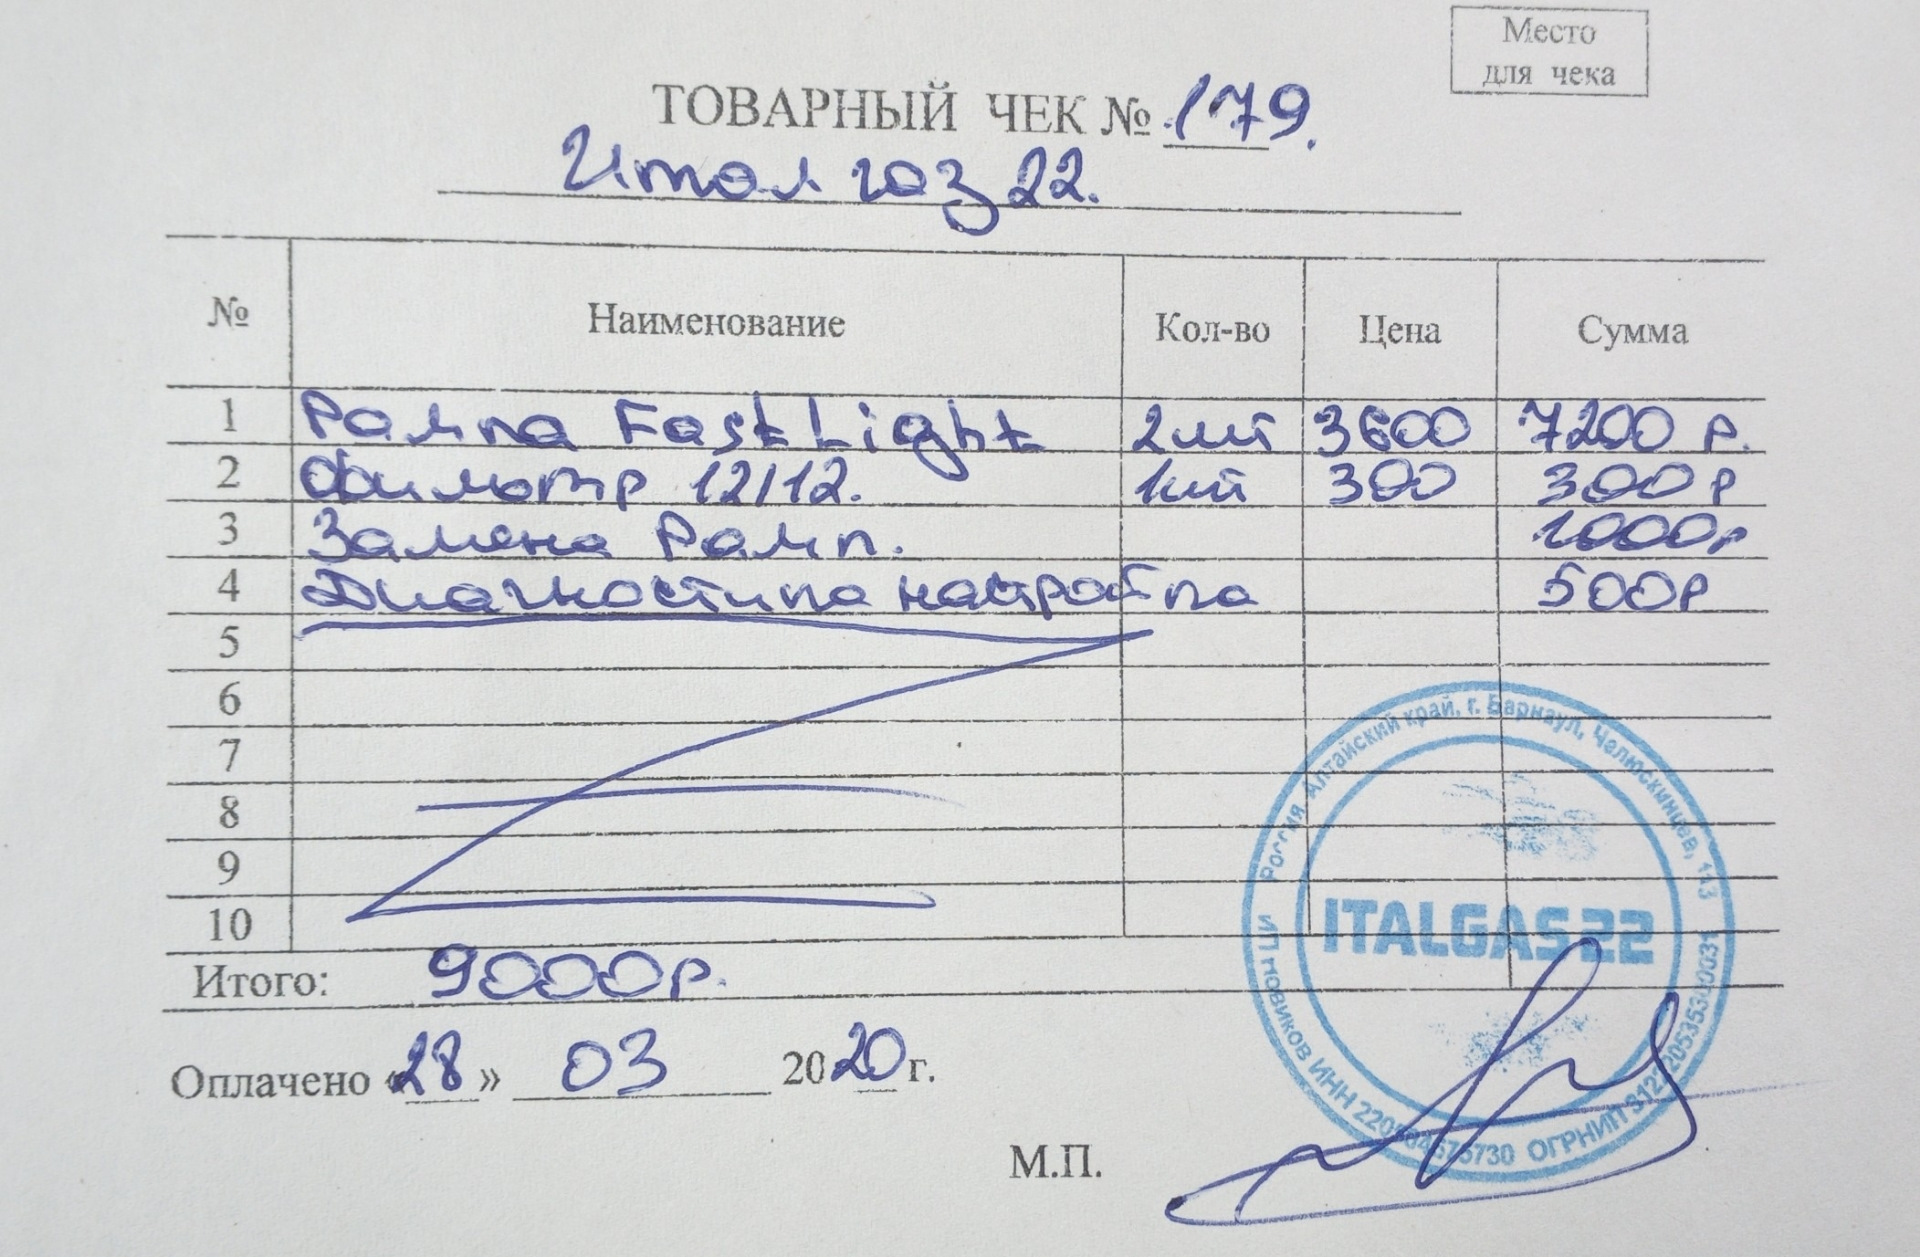 Место
для чека
ТОВАРНЫЙ ЧЕК № 179.
Итал газ 22.
№ Наименование Кол-во Цена Сумма
1 Рампа Fast Light 2шт 3600 7200 р.
2 Фильтр 12/12. 1шт 300 300 р
3 Замена Рамп. 1000р
4 Диагностика настройка 500р
5
6
7
8
9
10
Итого: 9000р.
Оплачено «28» 03 2020 г.
М.П.
Россия, Алтайский край, г. Барнаул, Челюскинцев, 113
ITALGAS22
ИП Новиков ИНН ОГРНИП